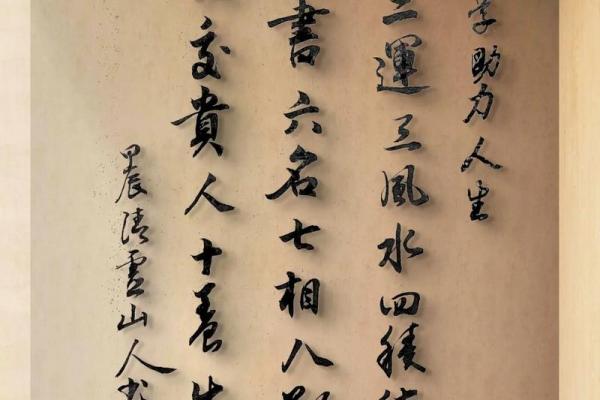 学助力人生
二運三風水四積
書六名七相八
交貴人十養生
甲辰清山人书